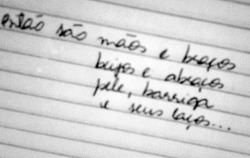 então são mãos e braços
beijos e abraços
pele, barriga
e seus laços...